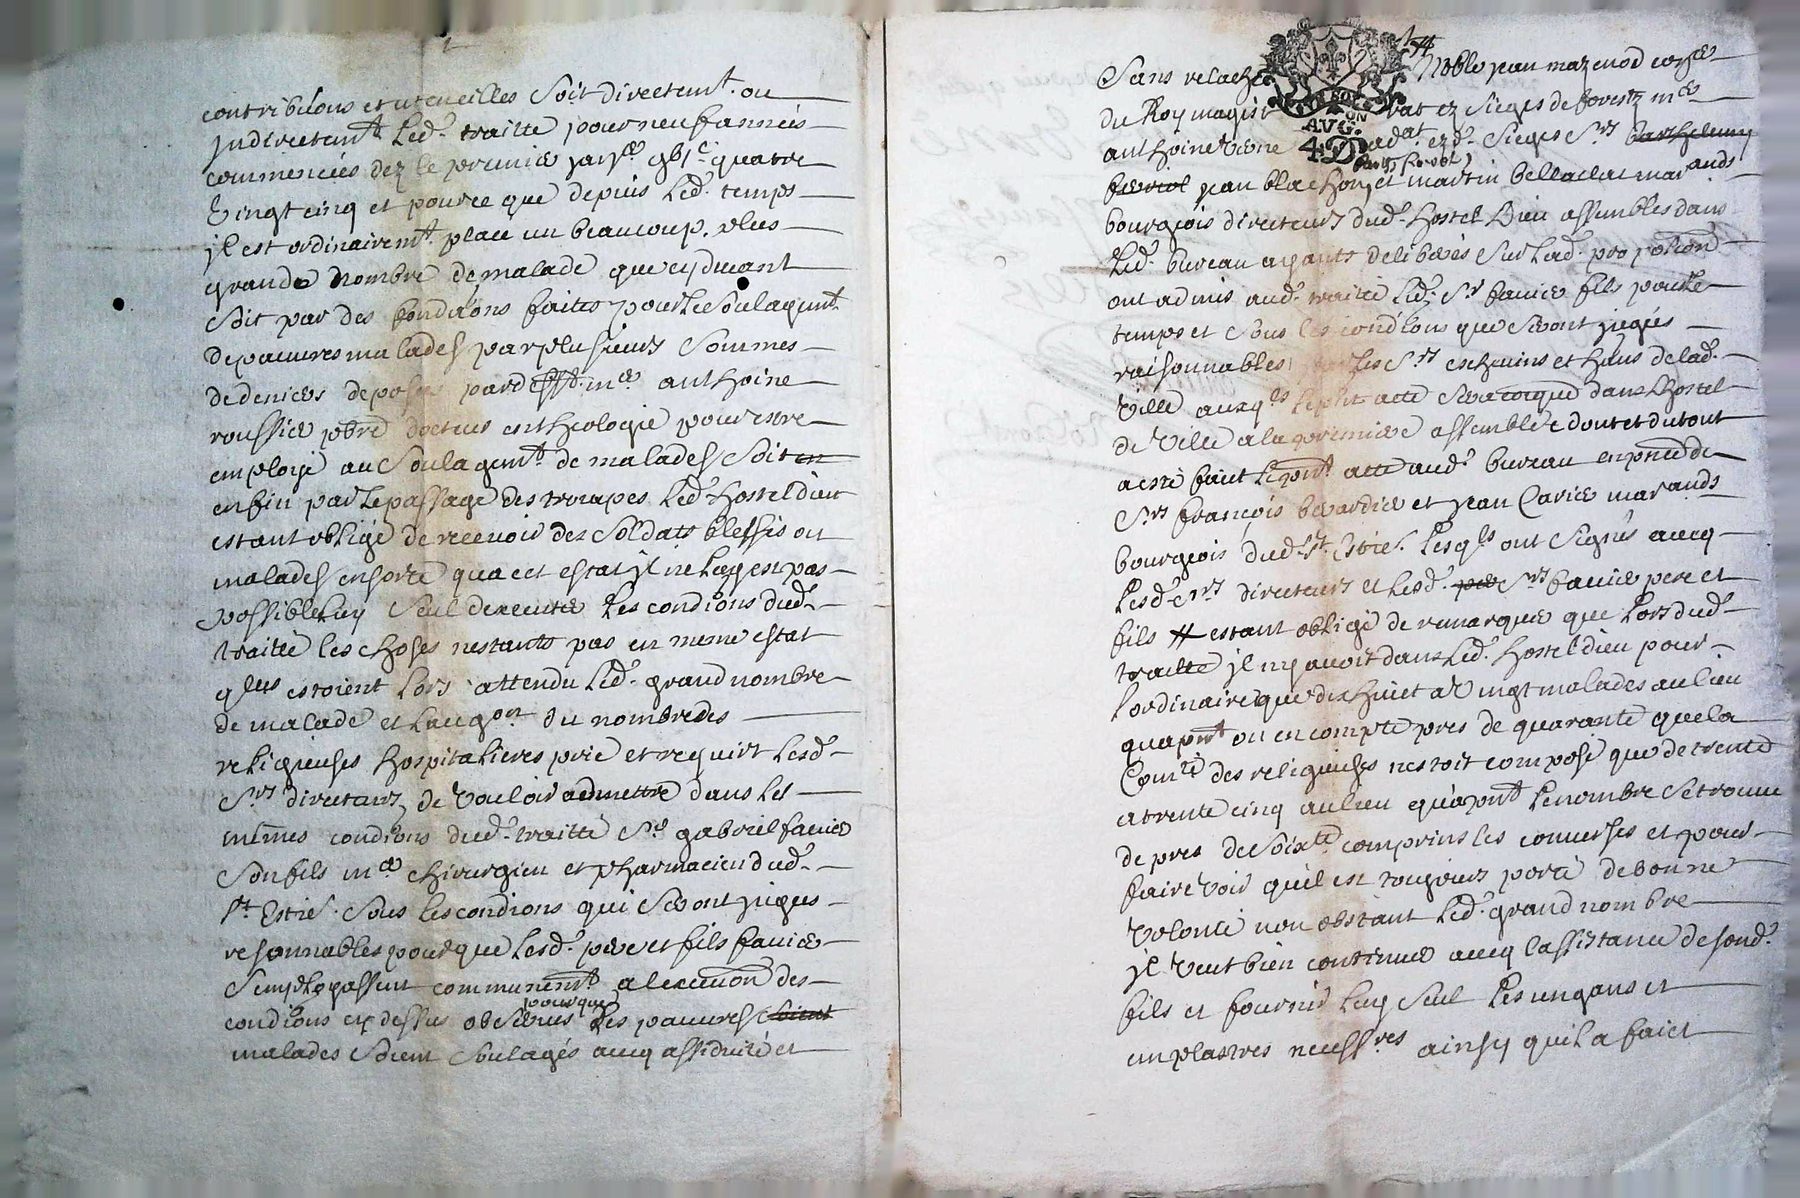 contributions et utencilles Soit directem.t ou
Jndirectem.t Led.t traitte pour neuf années
commencées dez le premier janv.er gbi.c quatre
Vingt cinq et pource que depuis Led.t temps
jl est ordinairem.t place un beaucoup plus
grande nombre de malade que cydevant
Soit par des fondions faites pour Le Soulagem.t
de pauvres malades par plusieurs Sommes
de deniers deposé par deff.t m.re anthoine
roussier pbre docteur en theologie pour estre
employé au Soulagem.t de malades Soit en
enfin par Le passage des troupes Led.t hostel dieu
estant obligé de recevoir des Soldats blessés ou
malades ensorte qua cet estat jl ne Luy est pas
possible Luy Seul dexecuter Les condions dud.t
traitté les choses nestants pas en meme estat
qlles estoient Lors attendu Led.t grand nombre
de malade et Laugon du nombre des
religieuses hospitalieres prie et requiert Lesd.t
S.rs directeurs de Vouloir admettre dans Les
mêmes condions dud.t traitté S.r gabriel favier
Son fils m.e chirurgien et pharmacien dud.t
S.t Estie. Sous Les condions qui Seront jugées
resonnables pour que Lesd.t pere et fils favier
Semployassent communem.t a lexecution des
pourque
condions cy dessus observées Les pauvres soient
malades Soient Soulagés avecq assiduité et
1#
Sans relache Noble jean mazenod cons.er
du Roy magistrat ez Sieges de forestz m.e
AVG. ON
4D
anthoine Verne advat ezd. Sieges S.rs barthelemy
feriol jean blachon et martin bellaclat marands
bourgeois directeurs dud.t hostel Dieu assemblés dans
Led.t bureau ayants deliberés Sur Lad.t propotion
ont admis aud.t traitté Led.t S.r favier fils pour Le
temps et Sous les condions que Seront jugées
raisonnables par Les S.rs eschevins et h̃ãns de lad.t
Ville auxq.ls Le pnt acte Sera comuniqué dans Lhostel
de Ville a la premiere assemblée dont et du tout
a esté faict Le pnt. acte aud.t bureau en pnce de
S.rs françois berardier et jean Carier marands
bourgeois dud. S.t Estie. Lesq.ls ont Signés avecq
Lesd.t S.rs directeurs et Lesd.t per S.rs favier pere et
fils # estant obligé de remarquer que Lors dud.t
traitté jl ny avoit dans Led.t hostel dieu pour
Lordinaire que dix huict a Vingt malades au lieu
qua pnt on en compte pres de quarante que la
Com.té des religieuses nestoit composé que de trente
a trente cinq au lieu qu'a pnt Le nombre Se trouve
de pres de Soix.te comprins les converses et pour
faire Voir quil est toujours porté de bonne
Volonté non obstant Led.t grand nombre
jl Veut bien continuer avecq lassistance de sond.t
fils et fournir Luy Seul Les ungans et
emplastres necess.res ainsy quil a faict